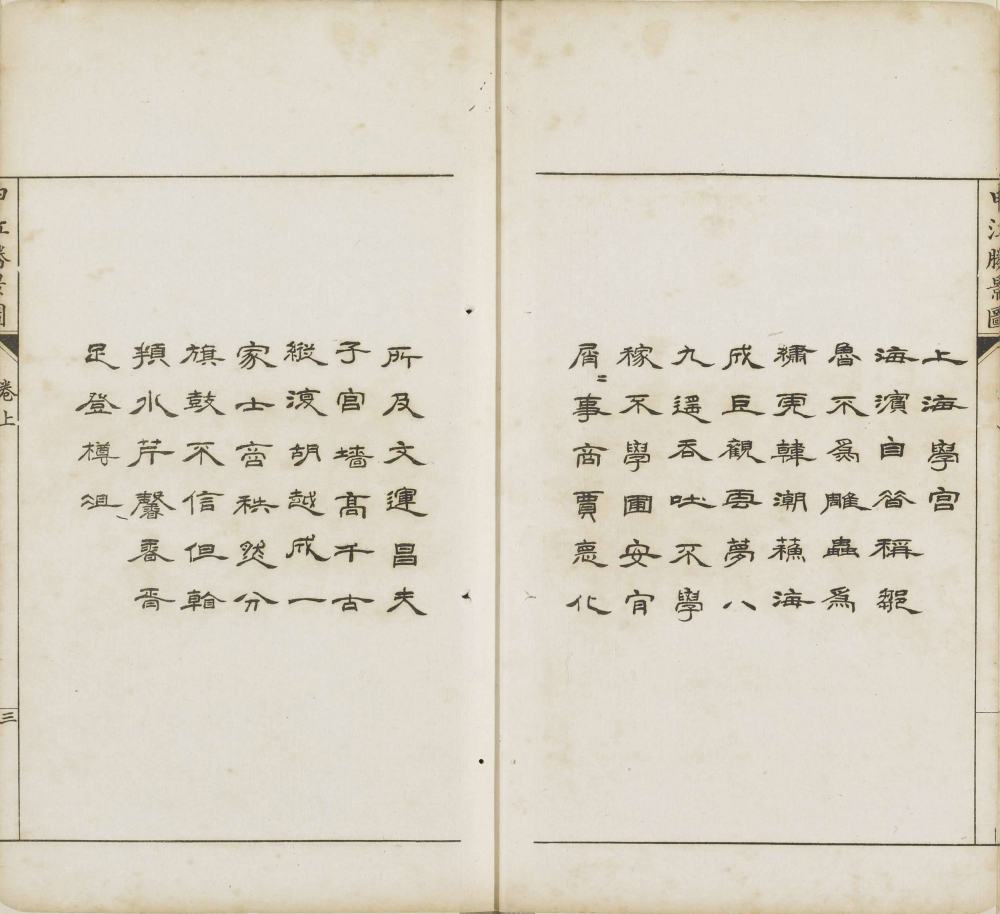 申江勝景圖
上海學宮
海濱自昔稱鄒
魯不爲雕蟲爲
繡虎韓潮蘓海
成巨觀雲夢八
九遥吞吐不學
稼不學圃安肎
屑〻事商賈悳化
所及文運昌夫
子宮墻髙千古
縱復胡越成一
家士商秩然分
旗鼓不信但輸
頖水芹馨香胥
足登樽俎
申江勝景圖
卷上
三